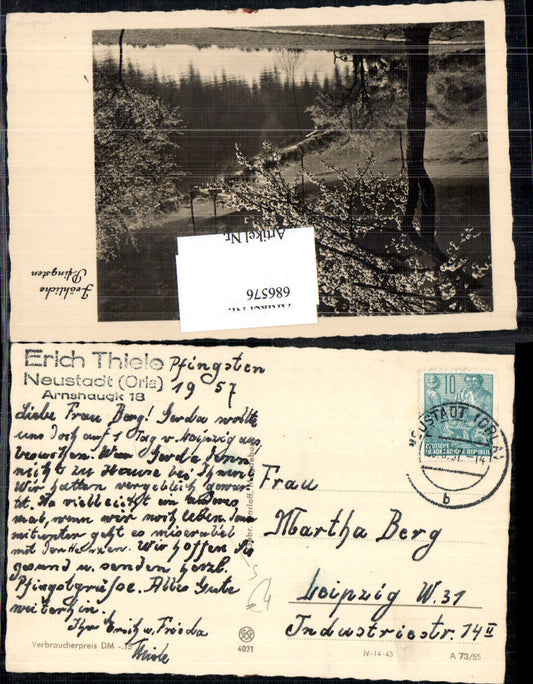 Fröhliche
Pfingsten
Artikel Nr.
686576
Artikel Nr.
Erich Thiele
Neustadt (Orla)
Arnshaugk 18
Pfingsten
1957
Liebe Frau Berg! Gerda wollte
uns doch auf 1 Tag v. Leipzig aus
besuchen. War Gerda denn
nicht zu Hause bei Ihnen?
Wir hatten vergeblich gewar-
tet. Na vielleicht ein anderes
mal, wenn wir noch leben, denn
mitunter geht es miserabel
mit den Herzen. Wir hoffen Sie
gesund u. senden herzl.
Pfingstgrüße. Alles Gute
weiterhin.
Ihre Erich u. Frieda
Thiele
10
DEUTSCHE
DEMOKRATISCHE REPUBLIK
NEUSTADT (ORLA)
b
Frau
Martha Berg
Leipzig W. 31
Industriestr. 14 II
Verbraucherpreis DM -.15
4031
IV-14-45
A 73/55